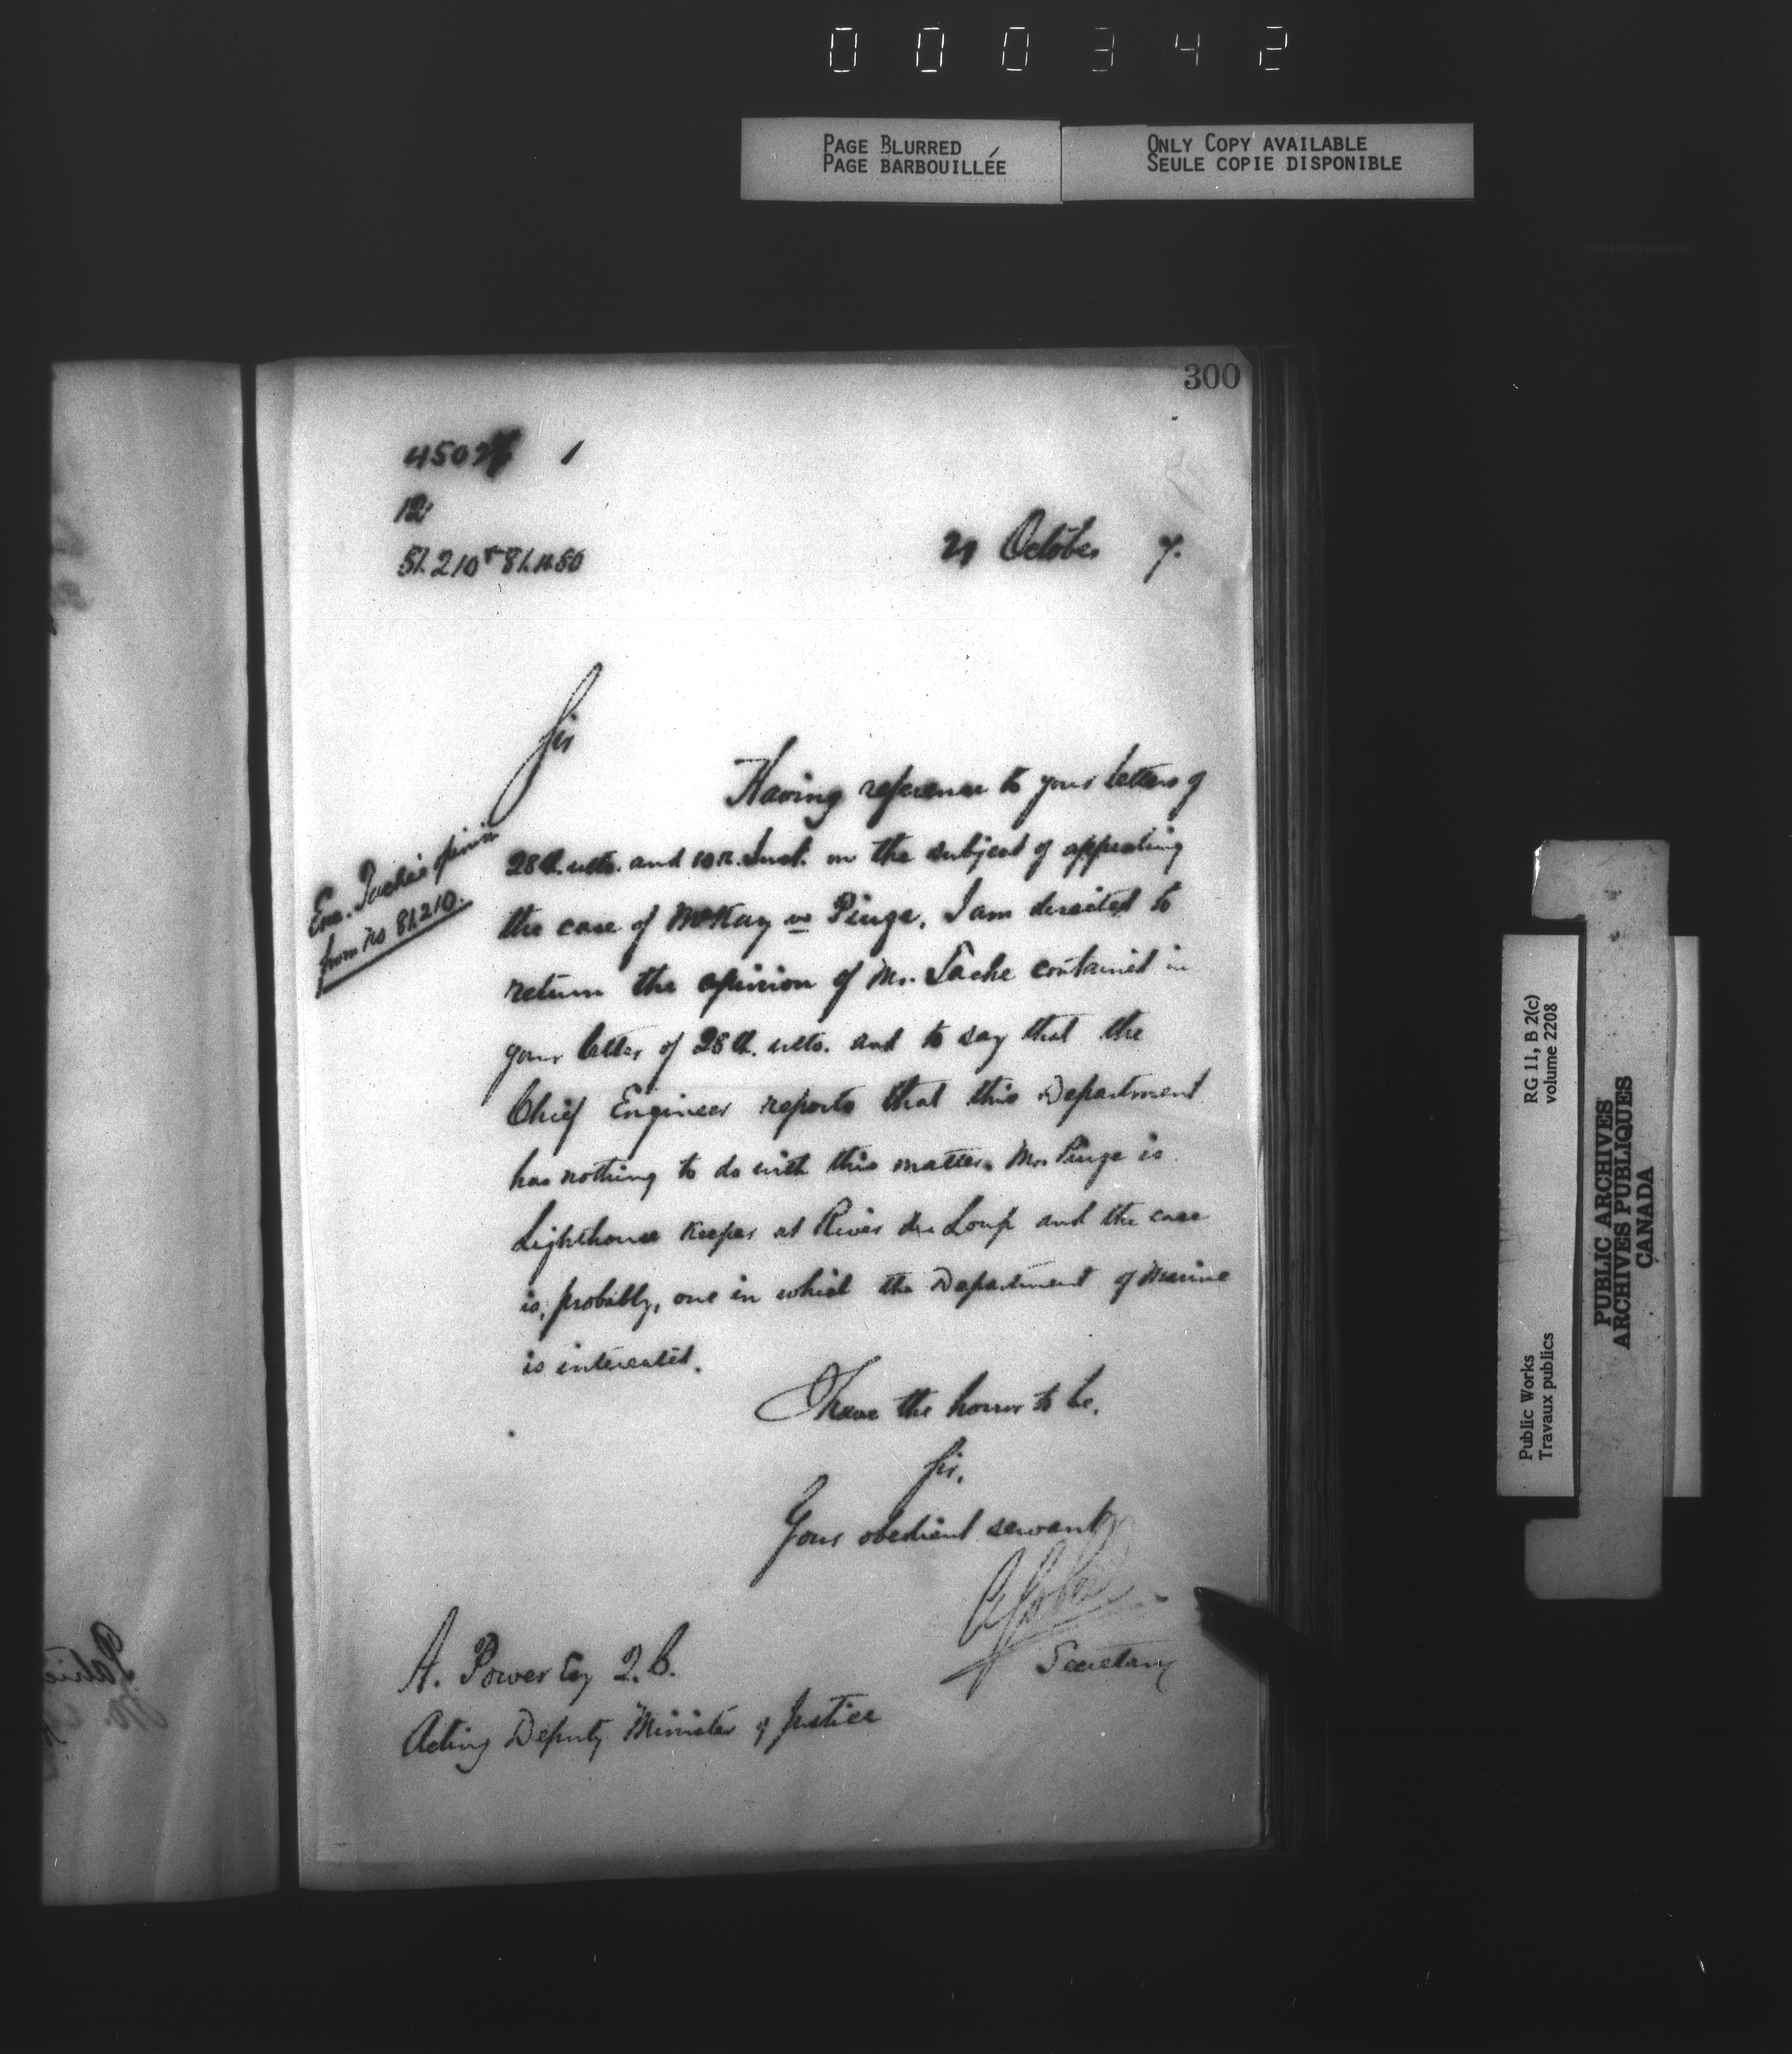 000342
PAGE BLURRED
PAGE BARBOUILLÉE
ONLY COPY AVAILABLE
SEULE COPIE DISPONIBLE
300
1
12
21 October 7.
Sir
Having reference to your letters of
28th. ulto. and 10th. Inst. on the subject of appealing
the case of McKay vs Piuze, I am directed to
return the opinion of Mr. Tache contained in
your letter of 28th. ulto. and to say that the
Chief Engineer reports that this Department
has nothing to do with this matter. Mr. Piuze is
Lighthouse Keeper at River du Loup and the case
is, probably, one in which the Department of Marine
is interested.
Enc. Tache's opinion
from No 81210.
I have the honor to be,
Sir,
Your obedient servant
A Gobeil
Secretary
A. Power Esq Q.C.
Acting Deputy Minister of Justice
RG 11, B 2(c)
volume 2208
Public Works
Travaux publics
PUBLIC ARCHIVES
ARCHIVES PUBLIQUES
CANADA